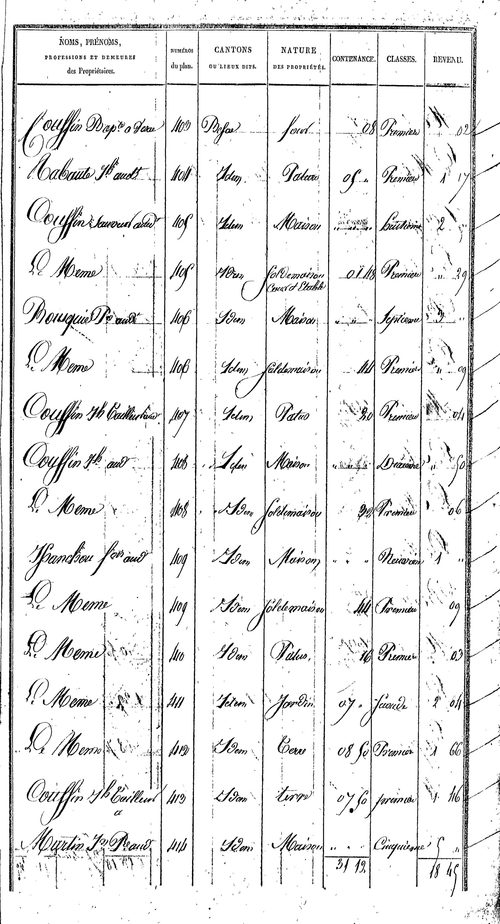 NOMS, PRÉNOMS, PROFESSIONS ET DEMEURES des Propriétaires. NUMÉROS du plan. CANTONS OU LIEUX DITS. NATURE DES PROPRIÉTÉS. CONTENANCE. CLASSES. REVENU.
Couffin 403 four 08 Premiere 02
Rabaute Jh audt 404 Idem Patus 05 " Premiere 1 17
Couffin audt 405 Idem Maison " " huitieme 2 "
Le Meme 405 Idem Sol de maison Cour et Etable 01 48 Premiere " 29
Bousquié audt 406 Idem Maison " " Septieme 3 "
Le Meme 406 Idem Sol de maison 44 Premiere " 09
Couffin Jh Tailleur 407 Idem Patus 20 Premiere 04
Couffin Jh audt 408 Idem Maison " " Dixieme " 50
Le Meme 408 Idem Sol de maison 32 Premiere 06
audt 409 Idem Maison " " Neuvieme 1 "
Le Meme 409 Idem Sol de maison 44 Premiere 09
Le Meme 410 Idem Patus 16 Premiere 03
Le Meme 411 Idem Jardin 07 " Seconde 2 04
Le Meme 412 Idem Terre 08 50 Premiere 1 66
Couffin Jh Tailleur 413 Idem terre 07 50 premiere 1 46
Martin audt 414 Idem Maison " " Cinquieme 5 "
31 12 18 45